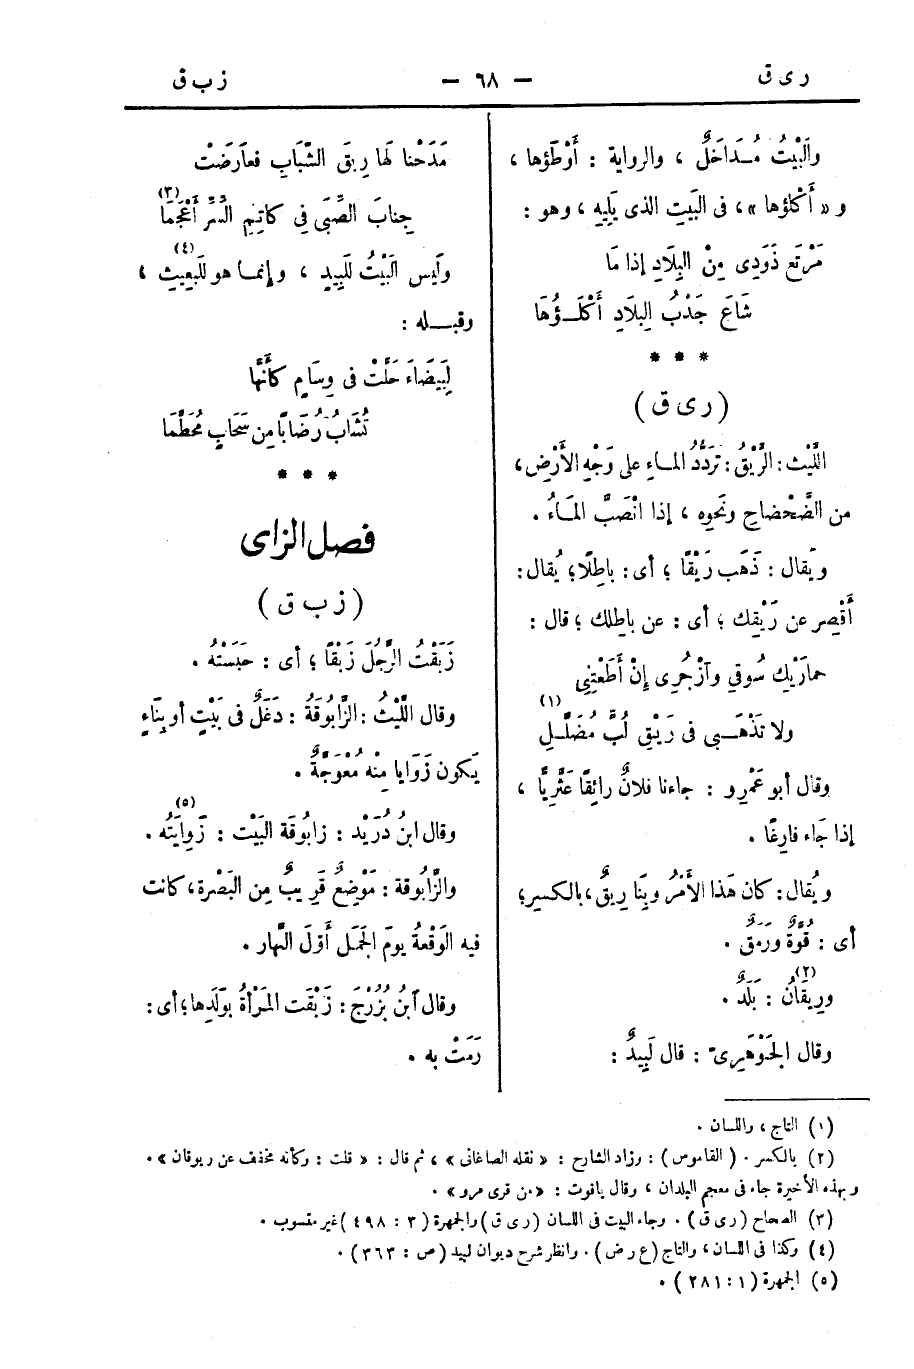 ر ى ق
— ٦٨ —
ز ب ق
والبَيْتُ مُــدَاخَلٌ ، والرواية : أَوْطَؤُها ،
و « أَكْلَؤُها » ، فى البَيتِ الذى يَلِيه ، وهو :
مَرْتَع ذَوْدِى مِنْ البِلَادِ إذا مَا
شَاعَ جَدْبُ البِلَادِ أَكْلَــؤُهَا
* * *
( ر ى ق )
اللَّيْث : الرَّيْقُ : تَرَدُّدُ المـاءِ على وَجْهِ الأَرْضِ ،
من الضَّحْضَاحِ ونَحْوِه ، إذا انْصَبَّ المَـاءُ .
ويُقال : ذَهَب رَيْقًا ؛ أى : باطِلًا ؛ يُقال :
أَقْصِر عن رَيْقِك ؛ أى : عن باطِلك ؛ قال :
حمارَيْك سُوقِى وٱزْجُرِى إنْ أَطَعْتِنِى
ولا تَذْهَــبِى فى رَيْقِ لُبٍّ مُضَلَّــلِ (١)
وقال أبو عَمْرٍو : جاءنا فلانٌ رائِقًا عَثَّرِيًّا ،
إذا جَاء فارِغًا .
ويُقال : كان هَذا الأَمْرُ وبِنَا رِيقٌ ، بالكسر ؛
أى : قُوَّةٌ ورَمَق .
ورِيقَانُ (٢) : بَلَدٌ .
وقال الجَوْهَرِىّ : قال لَبِيدٌ :
مَدَحْنا لَها رِيقَ الشَّبَابِ فعارَضَتْ
جِنابَ الصِّبَى فِى كاتِمِ السِّرِّ أَعْجَمَا (٣)
ولَيس البَيْتُ للَبِيدٍ ، وإنمـا هو للبَعِيثِ (٤) ،
وقبــله :
لِبَيضَاءَ حَلَّتْ فى وِسَامٍ كأنَّها
تُشَابُ رُضَابًا مِن سَحَابٍ مُحَطَّمَا
* * *
فصل الزاى
( ز ب ق )
زَبَقْتُ الرَّجُلَ زَبْقًا ؛ أى : حَبَسْتُه .
وقال اللَّيْثُ : الزَّابُوقَةُ : دَغَلٌ فى بَيْتٍ أو بِنَاءٍ
يَكون زَوَايا مِنْه مُعْوَجَّةٌ .
وقال ابنُ دُرَيْد : زابُوقَة البَيْت : زَوِايَتُه (٥) .
والزَّابُوقة : مَوْضِعٌ قَرِيبٌ مِن البَصْرة ، كانت
فيه الوَقْعةُ يومَ الجَمَل أوّلَ النَّهار .
وقال ٱبنُ بُزُرْجَ : زَبَقَت المَرْأةُ بوَلَدِها ؛ أى :
رَمَتْ به .
(١) التاج ، واللسان .
(٢) بالكسر . ( القاموس ) : وزاد الشارح : « نقله الصاغانى » ، ثم قال : « قلت : وكأنه مخفف عن ريوقان » .
وبهذه الأخيرة جاء فى معجم البلدان ، وقال ياقوت : « من قرى مرو » .
(٣) الصحاح ( ر ى ق ) . وجاء البيت فى اللسان ( ر ى ق ) والجمهرة ( ٣ : ٤٩٨ ) غير منسوب .
(٤) وكذا فى اللسان ، والتاج ( ع ر ض ) . وانظر شرح ديوان لبيد ( ص : ٣٦٣ ) .
(٥) الجمهرة ( ١ : ٢٨١ ) .